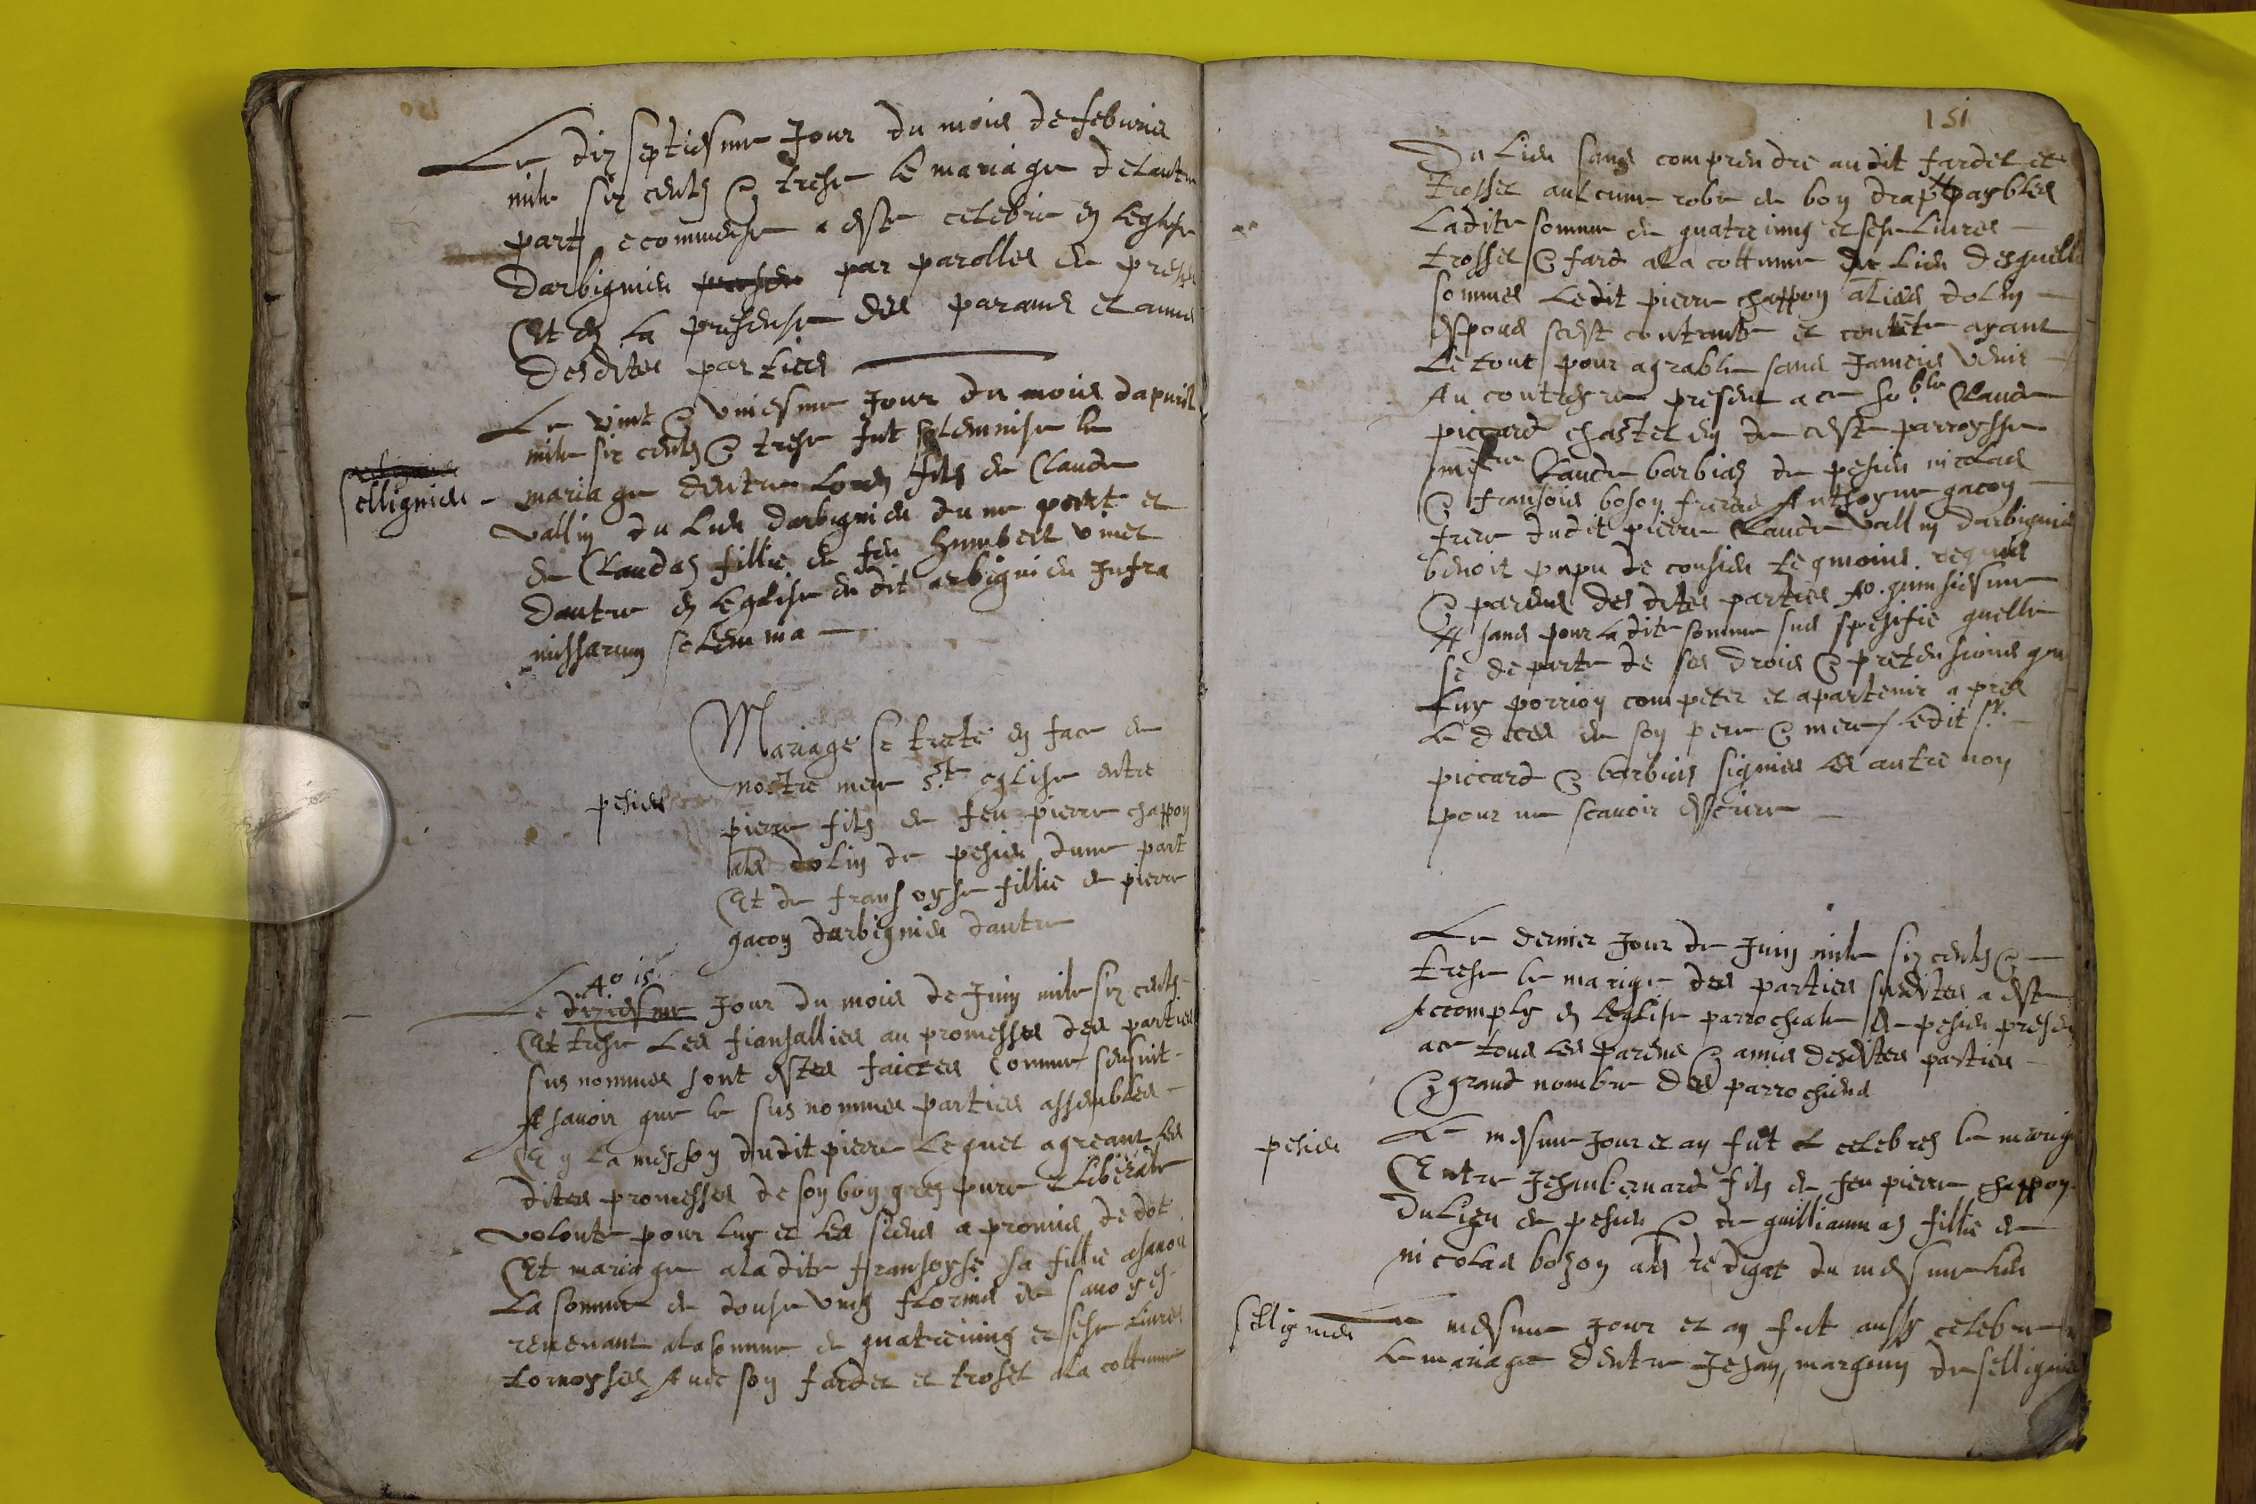 Le diz septiesme Jour du mois de feburie
mile siz centz & trese le mariage delautre
part, ecommense a este celebre en leglise
darbignieu par parolles de presen
Et en la presense des parans et amis
desdites parties
Le vint & vniesme Jour du mois dapuril
mile siz centz & trese fut solemnise le
sellignieu - mariage dentre Loys fils de Claude
vallin du lieu darbignieu dune part et
de Claudaz fillie de feu humbert vmet
dautre en leglise du dit arbignieu Infra
missarum solemnia -
Mariage se trete en face de
nostre mere Ste eglise entre
pesieu
pierre filz de feu pierre chappon
als dolin de pesieu dune part
Et de fransoyse fillie de pierre
gacon darbignieu dautre
Ao 15
Le diziesme Jour du mois de Juin mile siz centz
Et trese Les fiansallies au promesses des parties
sus nommes sont estes faictes Comme sensuit -
Asavoir que le sus nommes parties assembles -
En La meyson dudit pierre Lequel agreant les
dites promesses de son bon grez pure & Liberale
volonte pour luy et les siens a promis de dot
Et mariage a ladite fransoyse sa fillie asavoir
La somme de douse ving florins de savoye
revenant ala somme de quatreving et sese Livres
tornoyses Avec son fardel et trosel ala coltume
151
Du Lieu sans comprendre audit fardel et
trossel aulcune robe de bon drapt paybles
Ladite somme de quatreving et sese Livres -
trossel & fard ala cottume du lieu desquelle
sommes Ledit pierre chappon alias dolin -
espous sest contente et contente ayant
Le tout pour agrable sans Jameis venir -
Au contreyre presens a ce ho.ble Claude
piccard chastelein de ceste parroysse
me.re Claude barbiaz de pesieu nicolas
& fransois boson freres Anthoyne gacon -
frere dudit pierre Claude vallin darbignie
benoit papu de consieu teqmoins requis
& parens des dites parties Ao. quinsiesme
# sans pour ladite somme sus spesifie quelle
se departe de ses drois & pretensions que
Luy porrion competer et apartenir apres
Le deces de son pere & mere / Ledit sr.
piccard & barbias signies les autre non
pour ne scavoir escrire -
Le dernier Jour de Juin mile siz centz & -
trese le marige des parties susdites a este
Accomply en leglise parrochiale de pesieu presen
ace tous les parens & amis desdites parties -
& grand nombre des parrochiens
pesieu Le mesme Jour et an fut celebrez le marige
Entre Jehan bernard filz de feu pierre chappon
Du Lieu de pesieu & de guilliaumaz fillie de
nicolas bozon als redigat du mesme lieu
sellignieu Le mesme Jour et an fut aussy celebre
Le mariage dentre Jehan, margoin de sellignieu